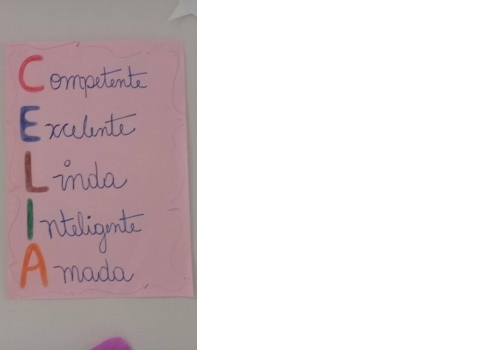 Competente
Excelente
Linda
Inteligente
Amada